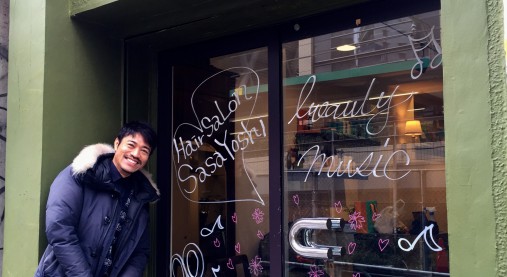 Hair Salon
SasaYoshi
beauty
music